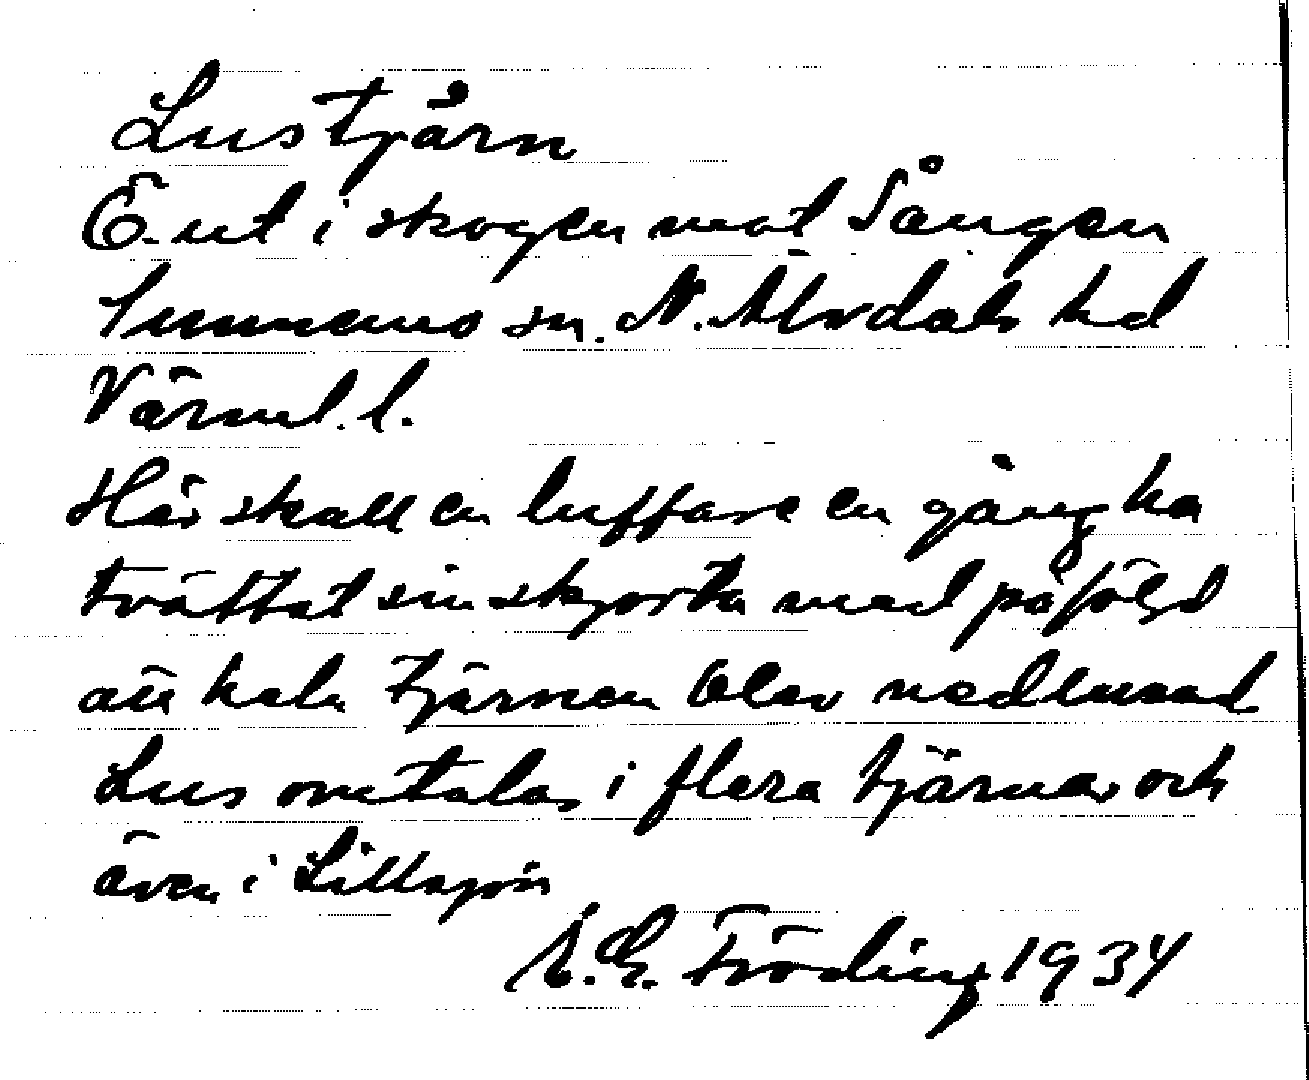 Lustjärn
Ö. ut i skogen mot Sången
Sunnemo sn. N. Älvdals hd
Värml. l.
Här skall en luffare en gång ha
tvättat sin skjorta med påföljd
att hela tjärnen blev nedlusad
Lus omtalas i flera tjärnar och
även i Lillsjön
E. G. Fröding 1934